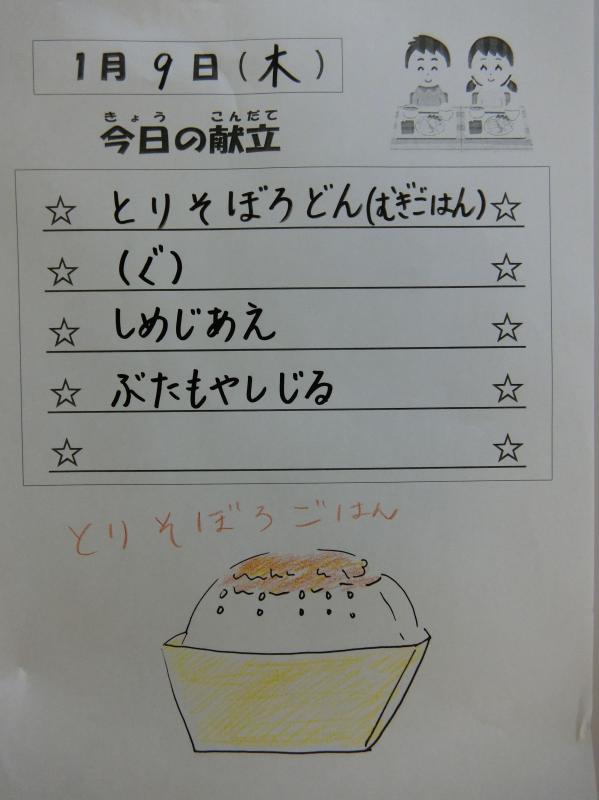 1月9日(木)
きょう こんだて
今日の献立
☆ とりそぼろどん(むぎごはん) ☆
☆ (ぐ) ☆
☆ しめじあえ ☆
☆ ぶたもやしじる ☆
☆ ☆
とりそぼろごはん